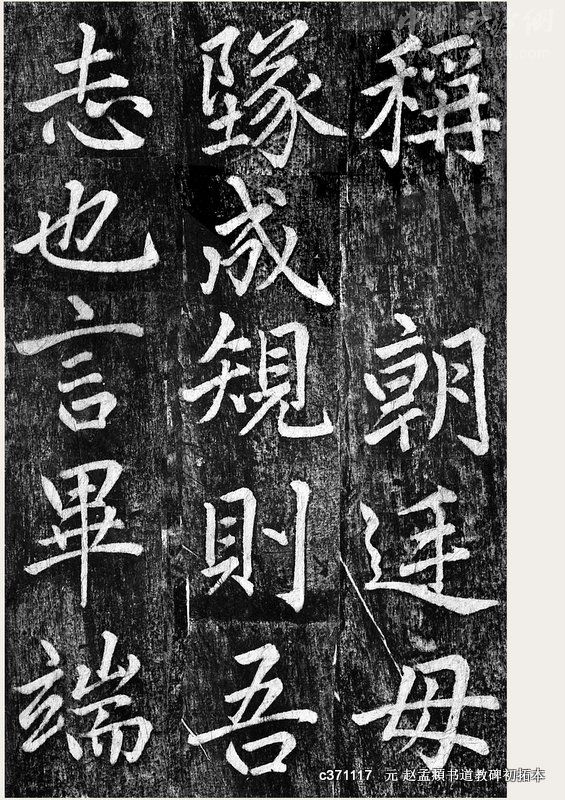 稱 朝廷毋
墜成規則吾
志也言畢端
c371117 元 赵孟頫书道教碑初拓本